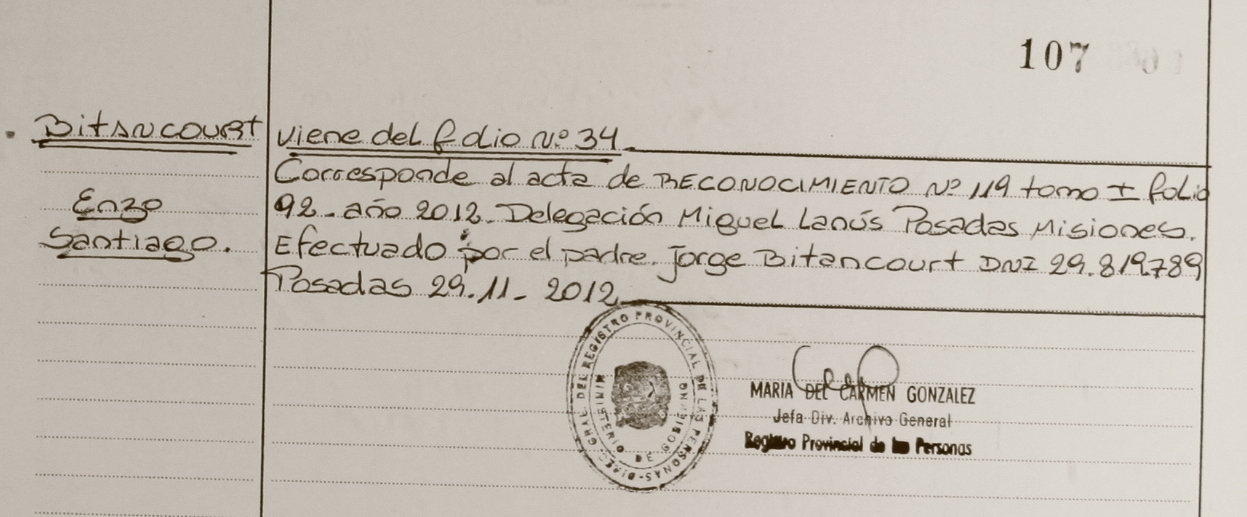 107
BitANCOURt
Enzo
Santiago.
viene del folio Nº 34
Corresponde al acta de RECONOCIMIENTO Nº 119 tomo I folio
92. año 2012. Delegación Miguel Lanús Posadas Misiones.
Efectuado por el padre. Jorge Bitancourt DNI 29.819.789
Posadas 29.11- 2012
DIREC. GRAL. DEL REGISTRO PROVINCIAL DE LAS PERSONAS
MINISTERIO DE GOBIERNO
MARIA DEL CARMEN GONZALEZ
Jefa Div. Archivo General
Registro Provincial de las Personas